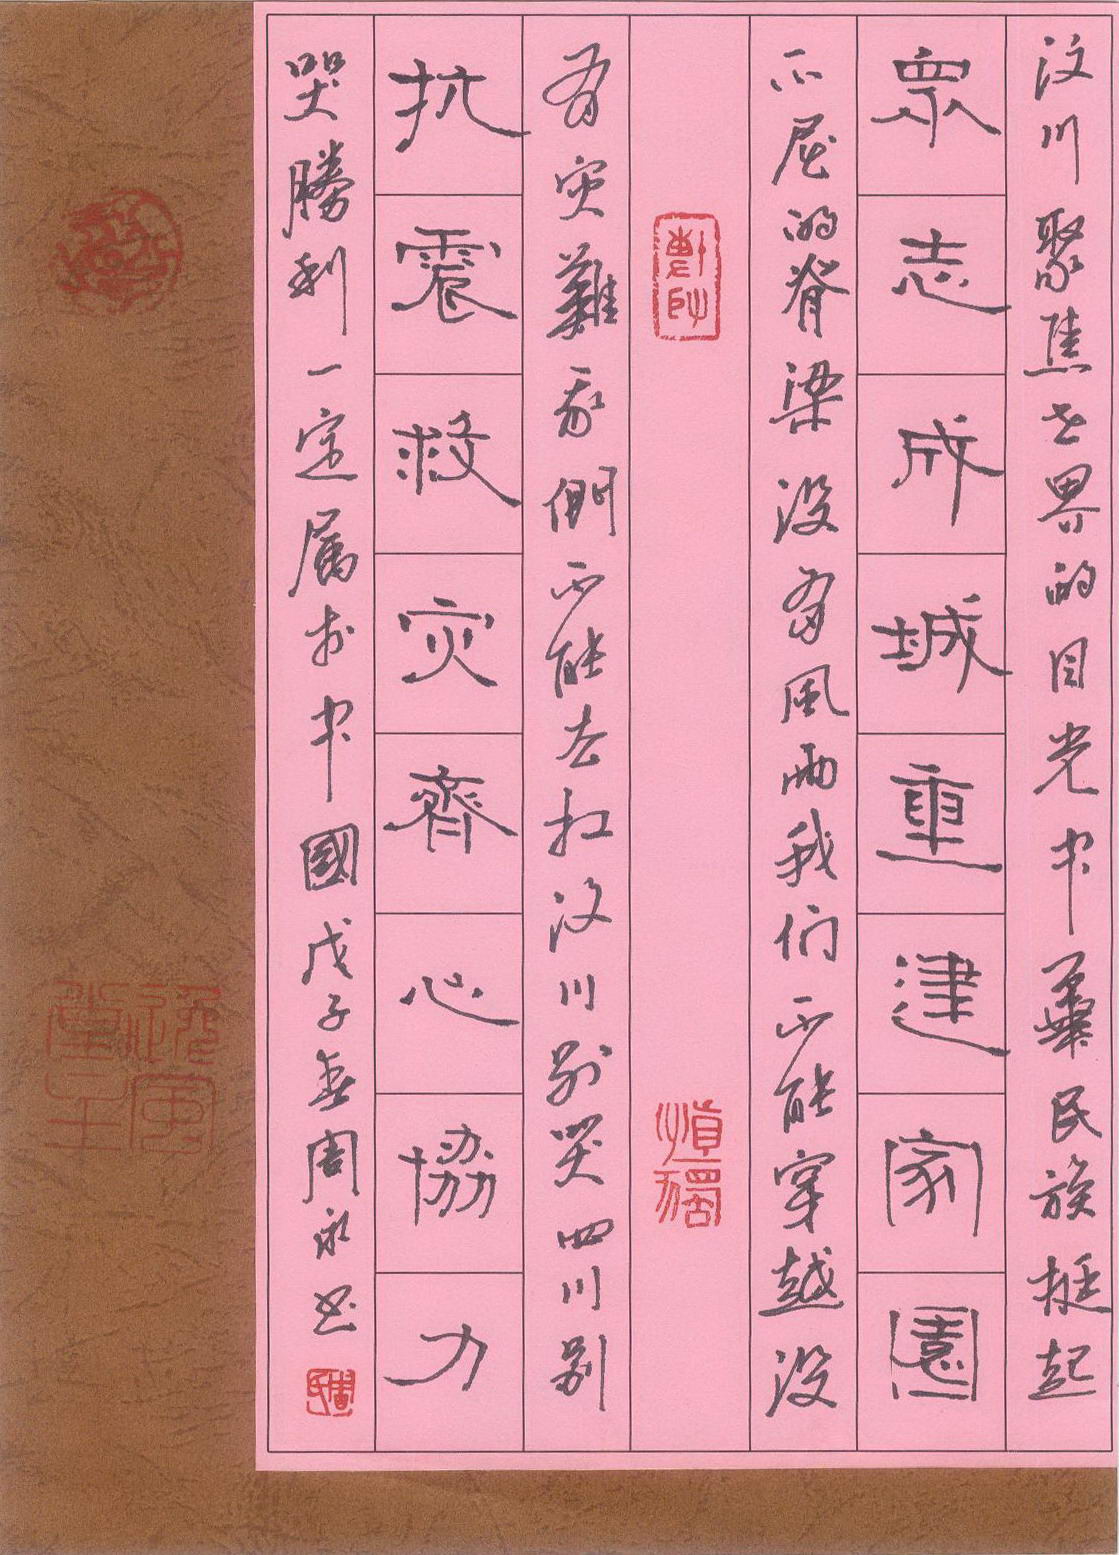 汶川聚焦世界的目光中華民族挺起
衆志成城重建家園
不屈的脊梁没有風雨我们不能穿越没
慎獨
有灾難我們不能去扛汶川别哭四川别
抗震救灾齊心協力
哭勝利一定属於中國戊子春周永书